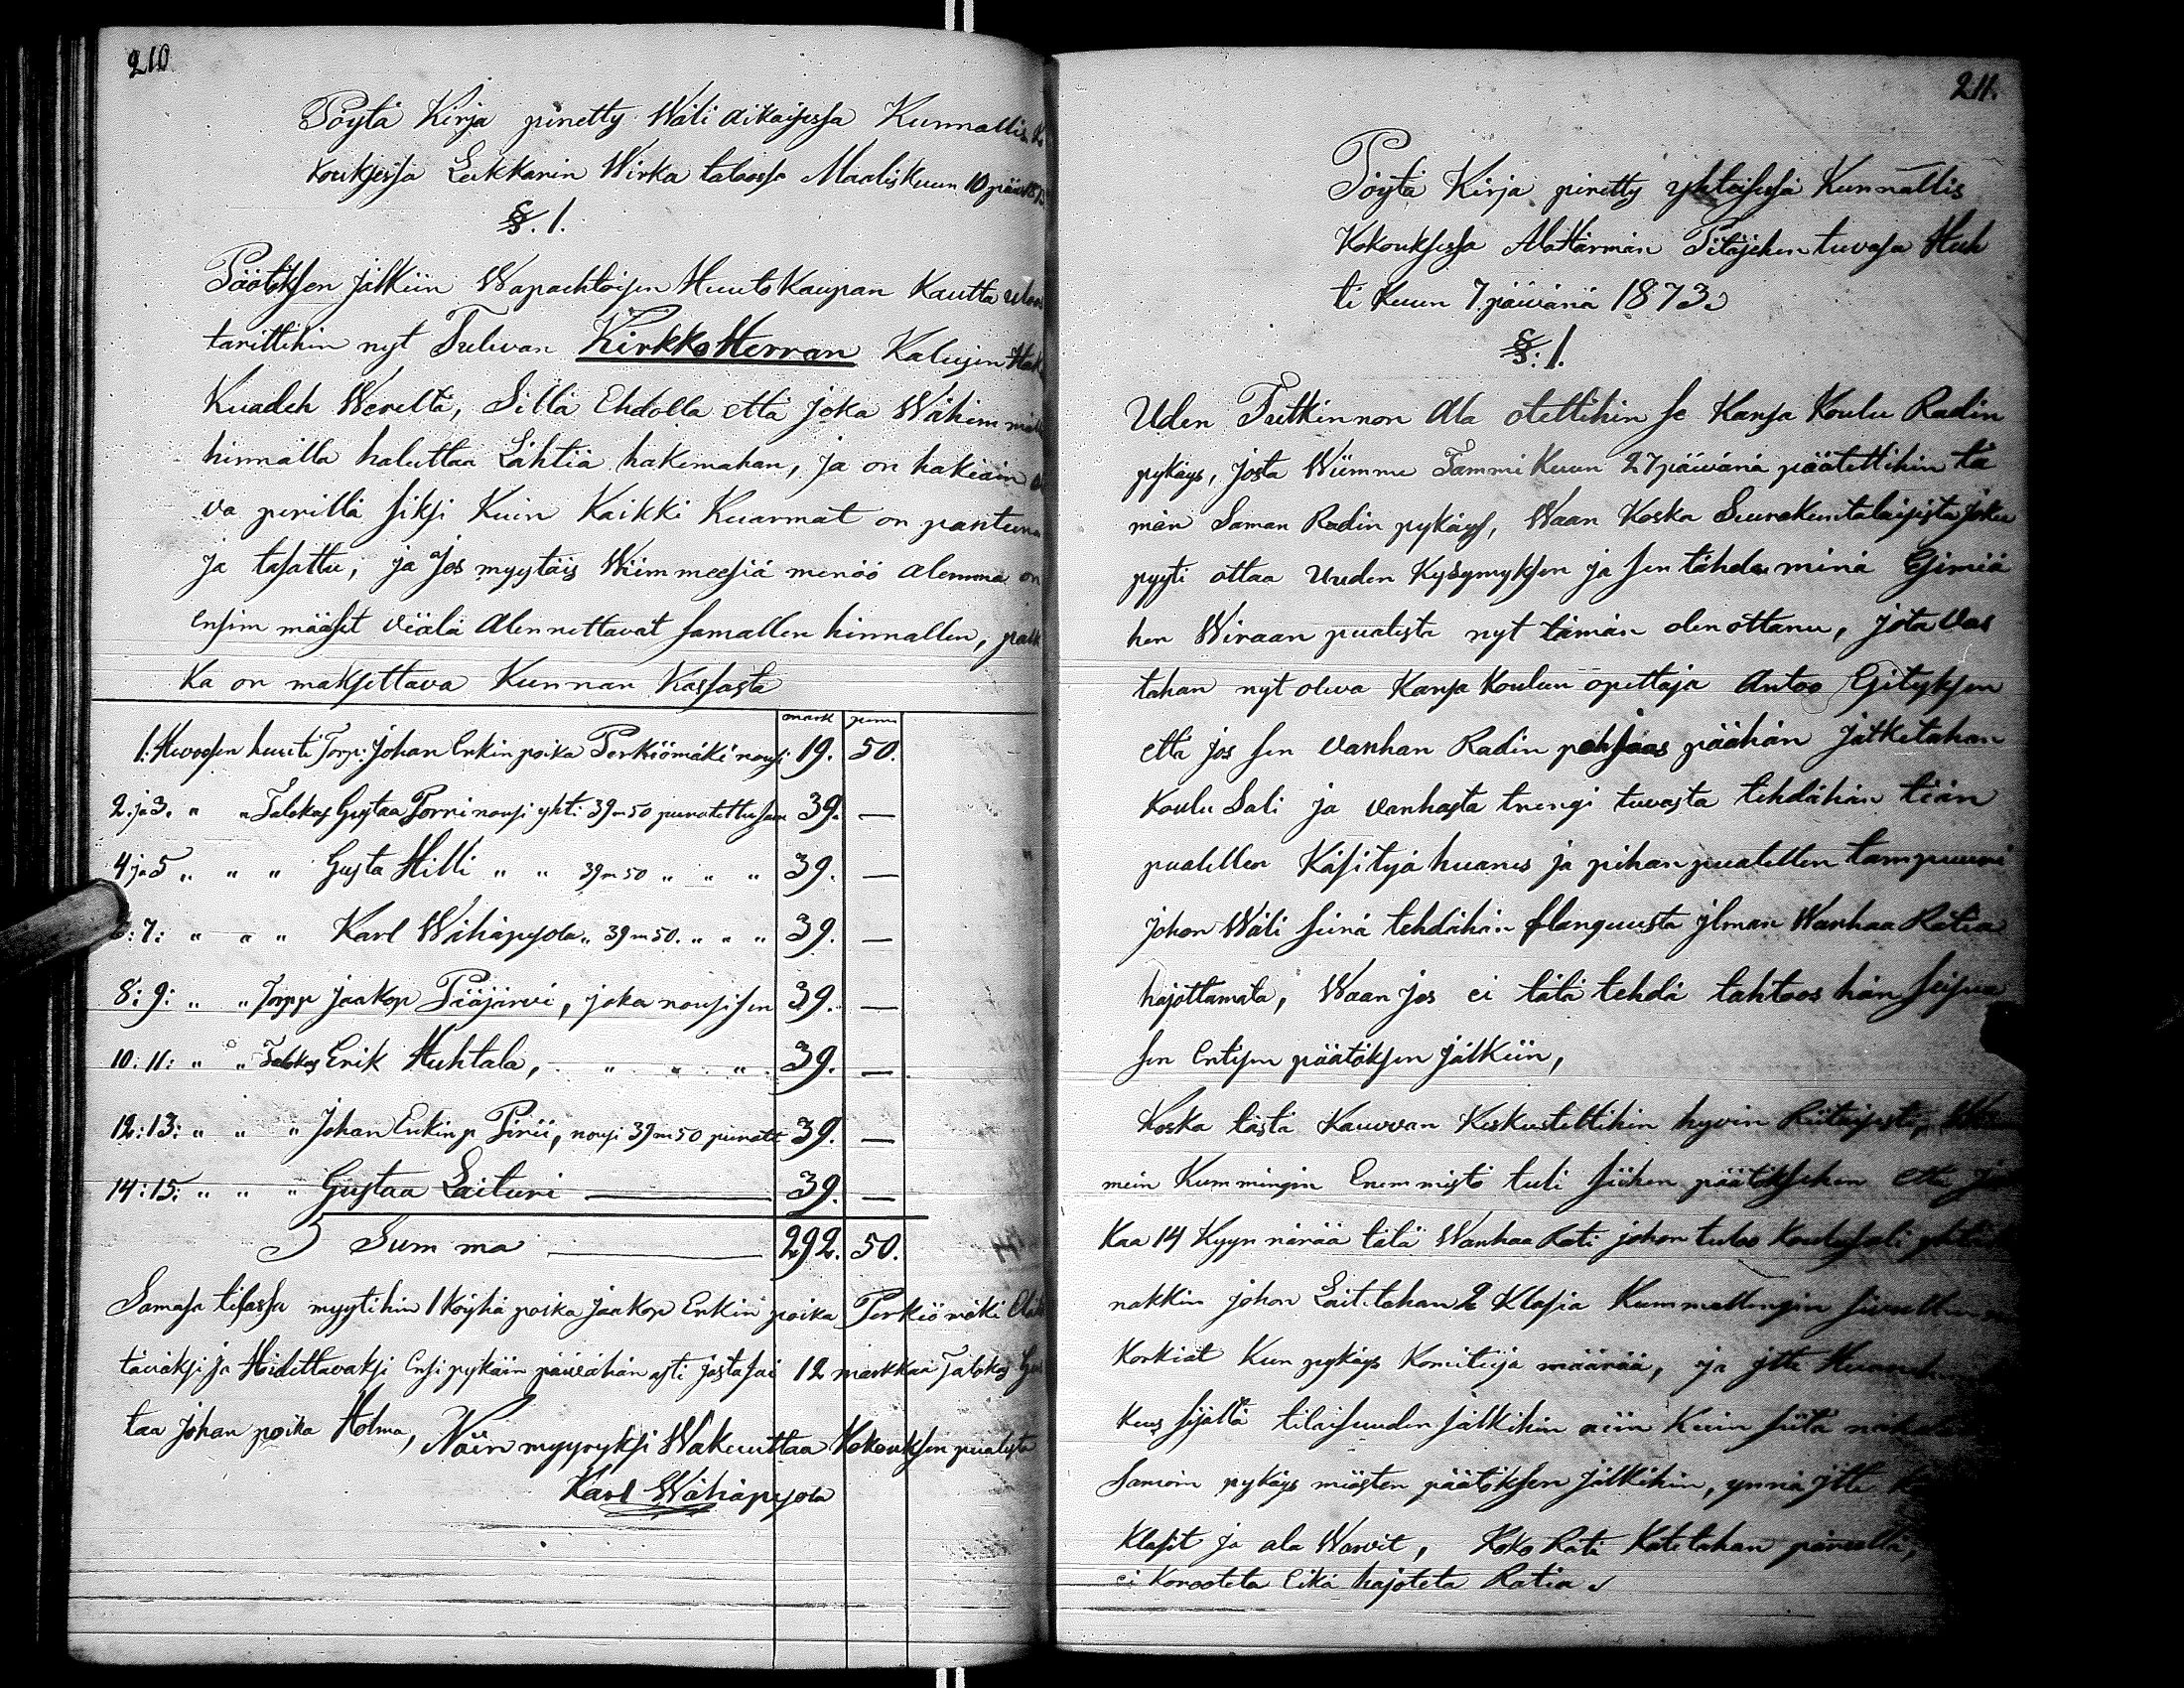 210
Pöytä Kirja piretty Wäli aikaisessa Kunnallis
Kouksessa Lukkarin Wirka talossa Maaliskuun 10 päiv
§. 1.
Päätöksen jälkiin Wapaehtoisen Huuto Kaupan Kautta
tarittihin nyt Tulevan KirkkoHerran Kalujen
Kuadeh Wereltä, Sillä Ehdolla että joka Wähim
hinnalla haluttaa Lähtiä hakemahan, ja on hakiain
va perillä siksi Kuin Kaikki Kuarmat on pantuna
ja tasattu, ja Jos myytäis Wiimmeesiä menöö alemma on
ensim määset viälä Alennettavat samallen hinnallen, palk
ka on maksettava Kunnan Kassasta
mark penni
1. Hevoosen huuti Torp: Johan Erkin poika Perkiömäki nousi 19. 50.
2. ja 3. " " Talokas Gustaa Porri nousi yht. 39 m 50 punatettu sum 39. —
4 ja 5 " " " Gusta Hilli " " 39 m 50 " " " 39. —
6: 7: " " " Karl Wähäpesola " 39 m 50. " " " 39. —
8: 9: " " Torpp Jaakop Pääjärvi, joka nousi sen 39. —
10: 11: " " Talokas Erik Huhtala, " " " 39. —
12: 13: " " " Johan Erkin p Pirii, nousi 39 m 50 punatt 39. —
14: 15: " " " Gustaa Laituri 39. —
Summa 292. 50.
Samasa tilassa myytihin 1 Köyhä poika Jaakop Erkin poika Perkiömäki
täväksi ja Hoidettavaksi Ensi pykäin päivähän asti josta sai 12 markkaa Talokas
taa Johan poika Holma, Näin myyryksi Wakuuttaa Kokouksen pualesta
Karl Wähäpesola
211.
Pöytä Kirja piretty yhteisesä Kunnallis
Kokouksessa Alattärmän Pitäjehen tuvasa Huh
ti Kuun 7. päivänä 1873.
§: 1.
Uden Tutkinnon Ala otettihin se Kansa Koulu Radin
pykäys, josta Wiimme Tammi Kuun 27 päivänä päätettihin tä
män Saman Radin pykäys, Waan Koska Seurakuntalaisista joku
pyyti ottaa Uuden Kysymyksen ja sen tähden minä Esimiä
hen Wiraan pualesta nyt tämän olen ottanu, jota vas
tahan nyt oleva Kansa Koulun opettaja Antoo Esityksen
että jos sen vanhan Radin pohjaas päähän jatketahan
Koulu Sali ja vanhasta trengi tuvasta tehdähän tiän
pualellen Käsityä huanes ja pihan pualellen tampuuri
johon Wäli seinä tehdähän flanguusta ilman Wanhaa Ratia
hajottamata, Waan jos ei tätä tehdä tahtoos hän seisua
sen Entisen päätöksen jälkiin,
Koska tästä Kauvvan Keskusteltihin hyvin Riitaisesti,
mein Kummingin Enemmistö tuli siihen päätöksehen että
kaa 14 Kyynärää tätä Wanhaa Rati johon tuloo Koulusali
nakkin johon Laitetahan 2 Klasia Kummallengin sivullen
Korkiat Kun pykäys Komiteija määrää, ja itte
kus sijältä tilaisuuden jälkihin niin Kuin siitä
Samoin pykäys miästen päätöksen jälkihin, ynnä itte
Klasit ja ala Warvit, Koko Rati Katetahan päreellä,
ei Koroteta Eikä hajoteta Ratia